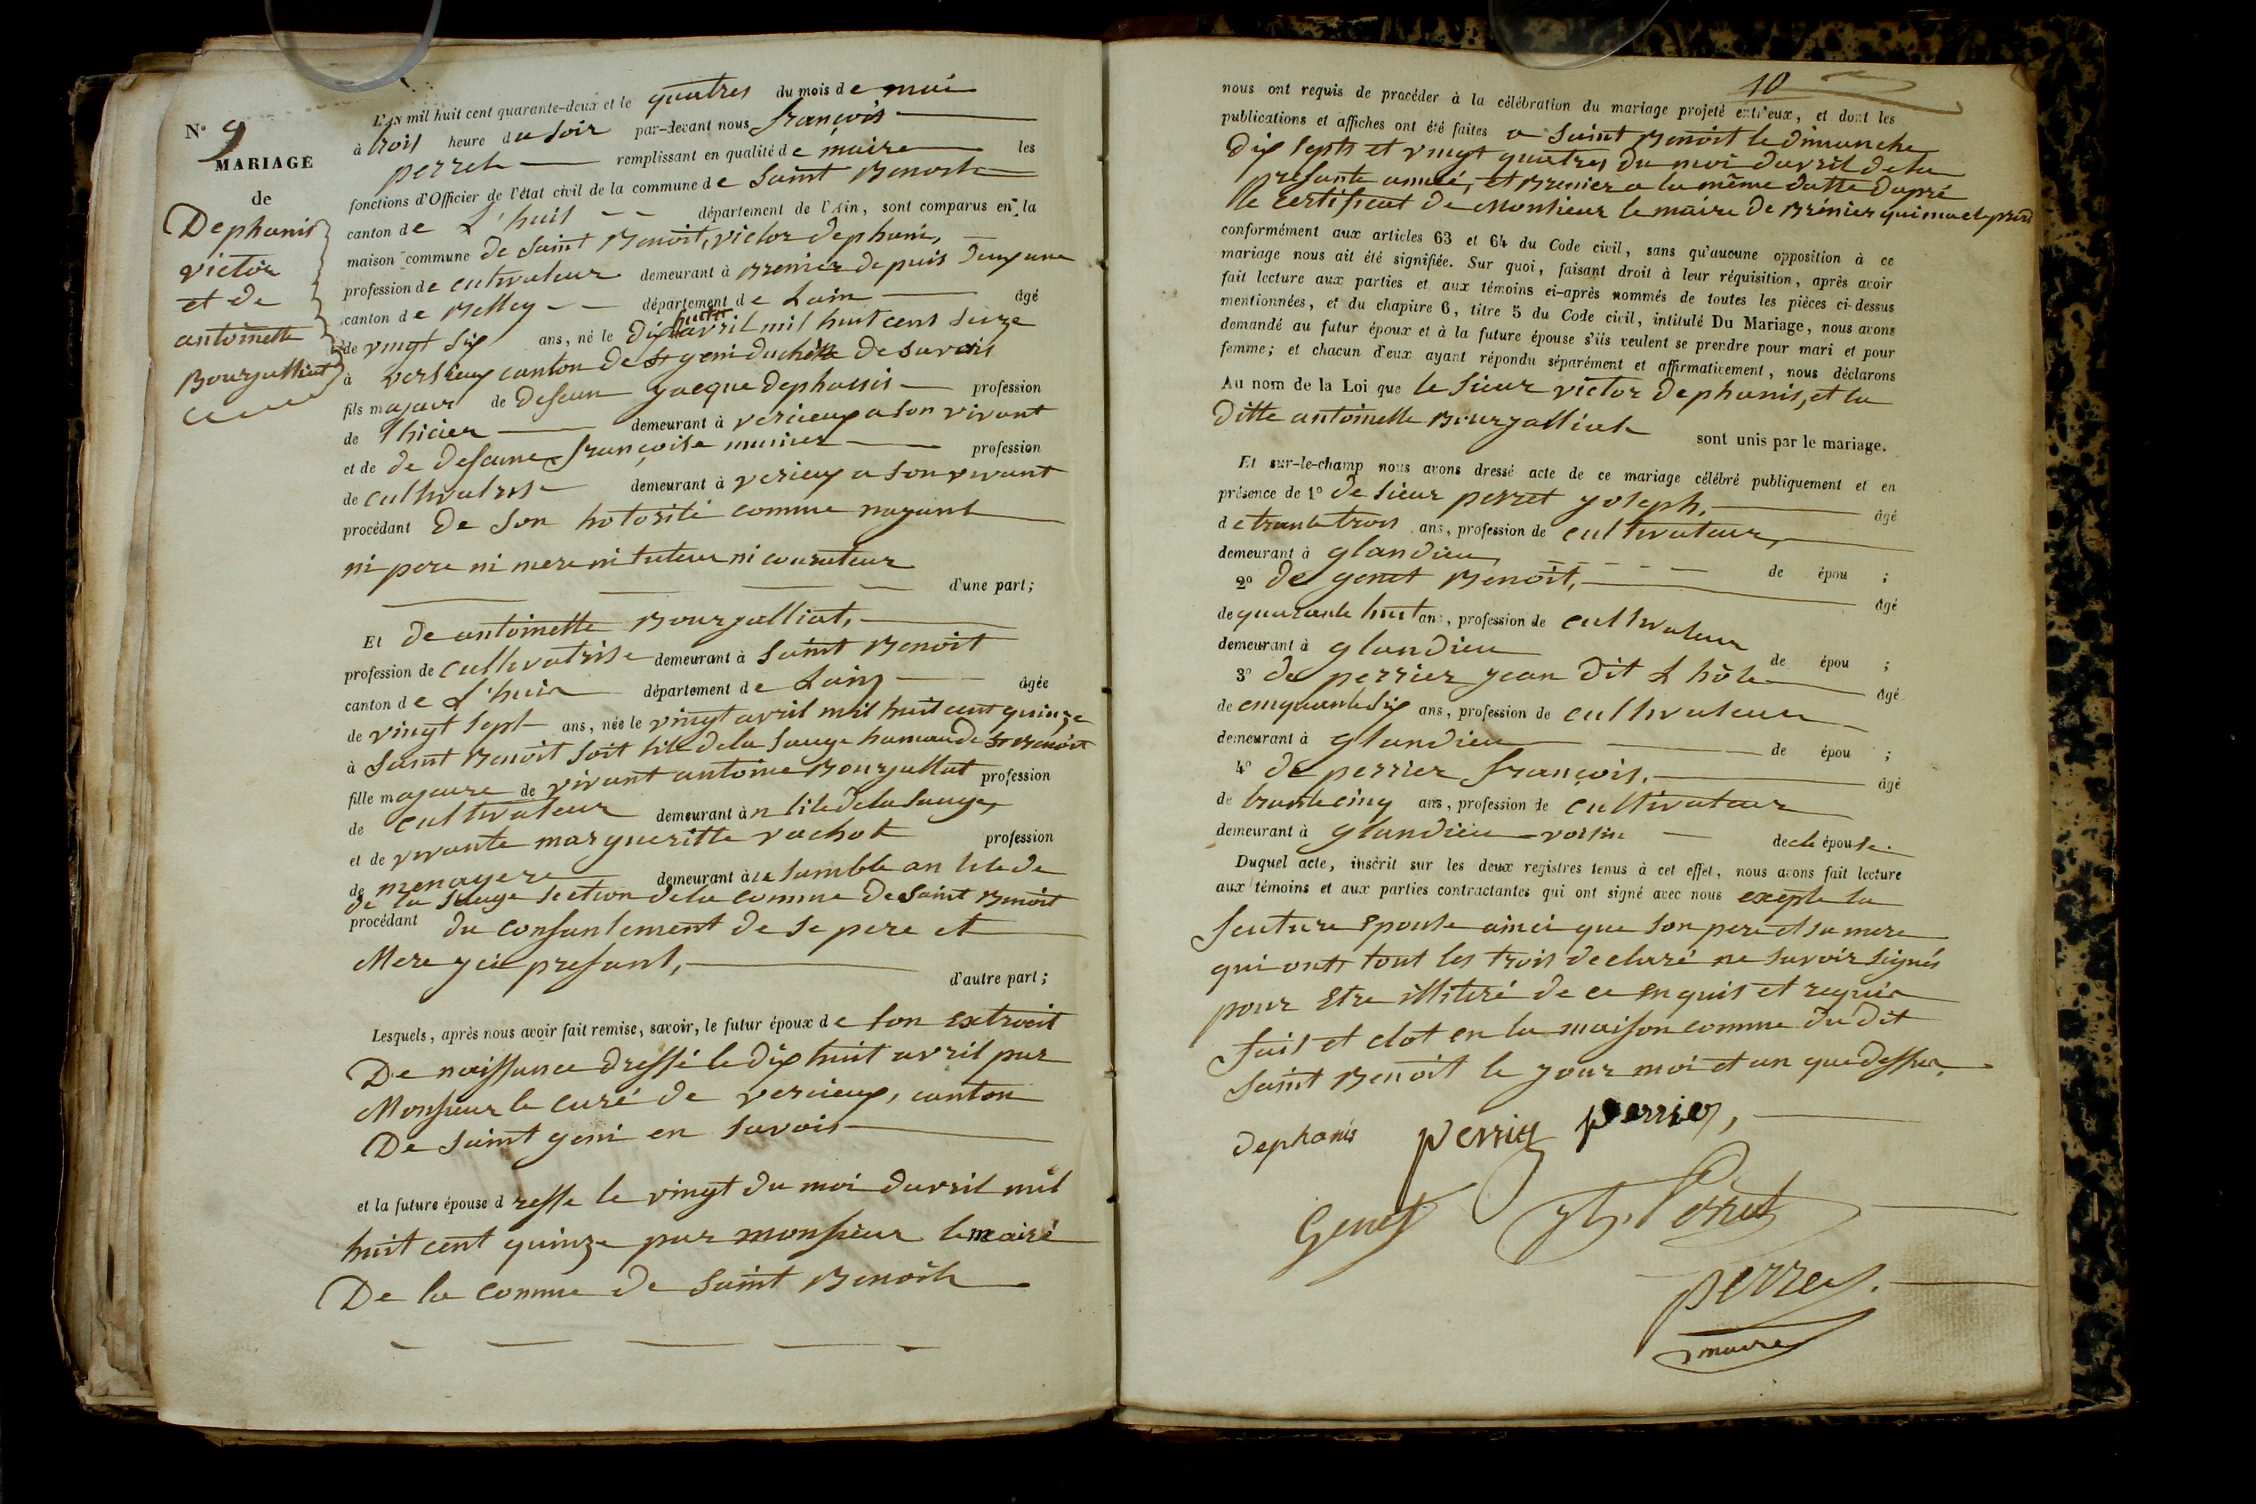 N° 9
MARIAGE
de
Dephanis
victor
et de
antoinette
Bourjalliat
L'AN mil huit cent quarante-deux et le quatres du mois de mai
à trois heure du soir par-devant nous françois
perret remplissant en qualité de maire les
fonctions d'Officier de l'état civil de la commune de Saint Benoit
canton de L'huis département de l'Ain, sont comparus en la
maison commune de Saint Benoit, victor dephanis,
profession de cultivateur demeurant à Brenier depuis deux ans
canton de Belley département de Lain âgé
de vingt six ans, né le dix huit avril mil huit cent seize
à versieux canton de St geni de Savois
fils majeur de defeun jacque dephassis profession
de demeurant à vericeux a son vivant
et de de defeune françoise munier profession
de cultivatrise demeurant à verieux a son vivant
procédant de son hotorité comme nayant
ni pere ni mere ni tuteur ni courateur
d'une part;
Et de antoinette Bourjalliat,
profession de cultivatrise demeurant à Saint Benoit
canton de L'huis département de Lain âgée
de vingt sept ans, née le vingt avril mil huit cent quinze
à Saint Benoit soit lile de la Sauge hamau de St Benoit
fille majeure de vivant antoine Bourjallat profession
de cultivateur demeurant à n lile de la Sauge,
et de vivante margueritte vachot profession
de menagere demeurant à samble an lile de
de la Sauge section de la comune de Saint Benoit
procédant du consantement de se pere et
Mere y ci presant,
d'autre part;
Lesquels, après nous avoir fait remise, savoir, le futur époux de son extroit
De naissance dressé le dix huit avril par
Monsieur le curé de vericeux, canton
De Saint geni en Savois
et la future épouse d resse le vingt du moi davril mil
huit cent quinze par monsieur le maire
De la comune de Saint Benoit
10
nous ont requis de procéder à la célébration du mariage projeté entr'eux, et dont les
publications et affiches ont été faites a Saint Benoit le dimanche
dix septs et vingt quatres du moi davril de la
presante année, et Brenier a la même datte dapré
le certificat de Monsieur le maire de Brénier
conformément aux articles 63 et 64 du Code civil, sans qu'aucune opposition à ce
mariage nous ait été signifiée. Sur quoi, faisant droit à leur réquisition, après avoir
fait lecture aux parties et aux témoins ci-après nommés de toutes les pièces ci-dessus
mentionnées, et du chapitre 6, titre 5 du Code civil, intitulé Du Mariage, nous avons
demandé au futur époux et à la future épouse s'ils veulent se prendre pour mari et pour
femme; et chacun d'eux ayant répondu séparément et affirmativement, nous déclarons
Au nom de la Loi que le sieur victor dephanis, et la
ditte antoinette Bourjalliat sont unis par le mariage.
Et sur-le-champ nous avons dressé acte de ce mariage célébré publiquement et en
présence de 1° de sieur perret joseph, âgé
de trante trois ans, profession de cultivateur,
demeurant à glandieu de épou ;
2° de genet Benoit, âgé
de quarante huit ans, profession de cultivateur
demeurant à glandieu de épou ;
3° de perrier jean dit L hôte âgé
de cinquante six ans, profession de cultivateur
demeurant à glandieu de épou ;
4° de perrier françois, âgé
de trante cinq ans, profession de cultivateur
demeurant à glandieu voisin de de épouse.
Duquel acte, inscrit sur les deux registres tenus à cet effet, nous avons fait lecture
aux témoins et aux parties contractantes qui ont signé avec nous exepte la
feuture Epouse ainci que son pere et sa mere
qui onts tout les trois declaré ne savoir signés
pour Etre illitéré de ce enquis et requis
fais et clot en la maison comune du dit
Saint Benoit le jour moi et an que dessus,
dephanis perrier perrier,
Genet jh. Perret
perret.
maire